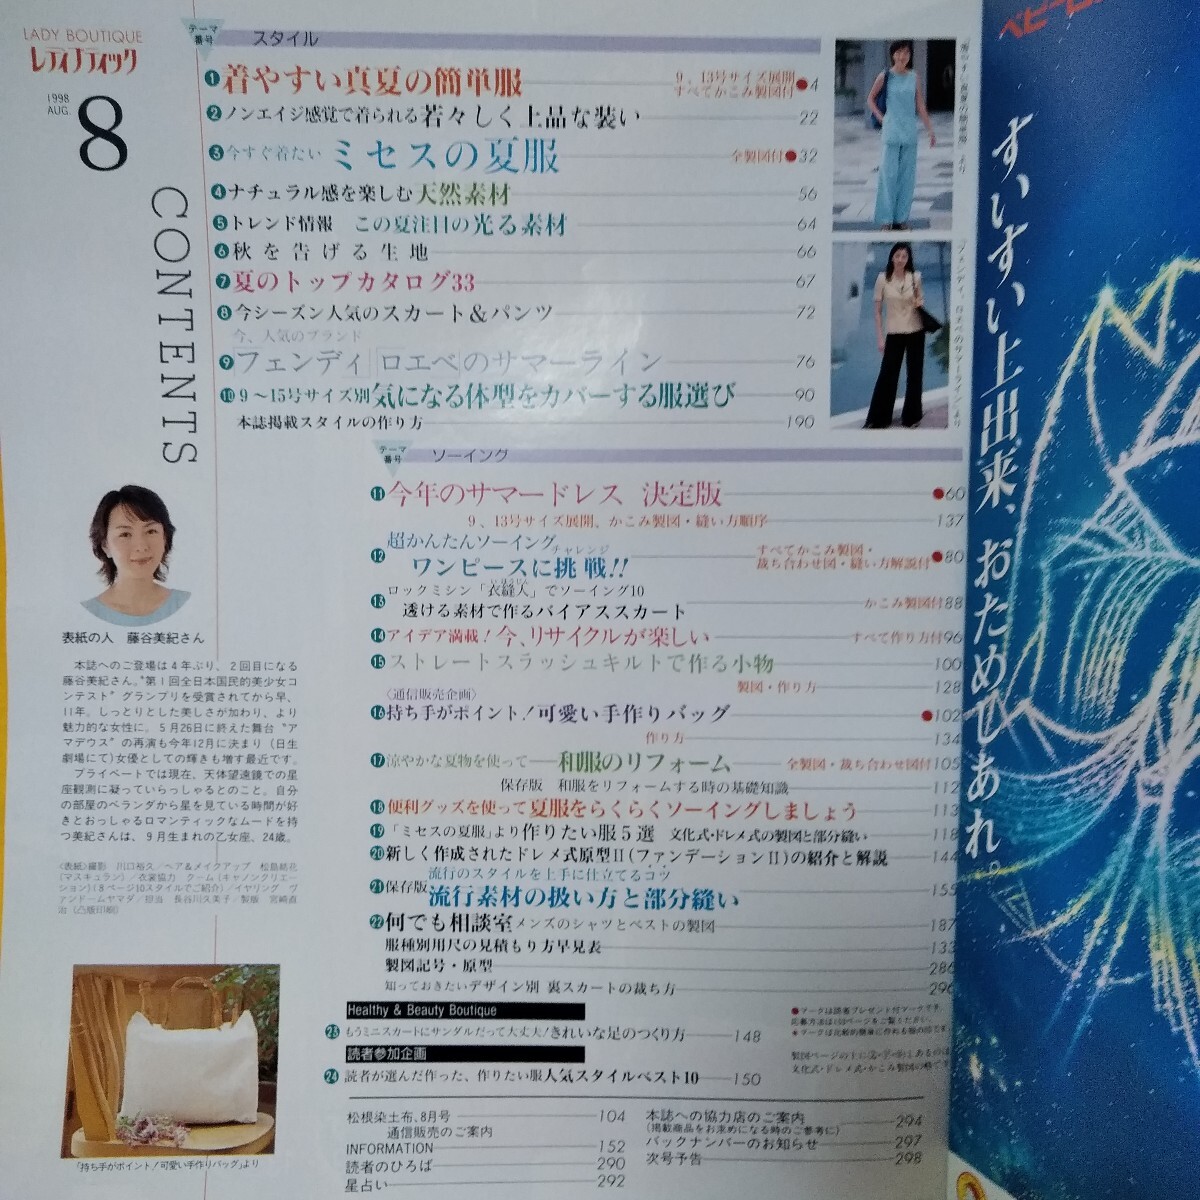 LADY BOUTIQUE
レディブティック
1998
AUG.
8
CONTENTS
テーマ
番号
スタイル
1 着やすい真夏の簡単服
9、13号サイズ展開
すべてかこみ製図付●4
2 ノンエイジ感覚で着られる若々しく上品な装い 22
3 今すぐ着たい ミセスの夏服 全製図付●32
4 ナチュラル感を楽しむ天然素材 56
5 トレンド情報 この夏注目の光る素材 64
6 秋を告げる生地 66
7 夏のトップカタログ33 67
8 今シーズン人気のスカート&パンツ 72
今、人気のブランド
9 フェンディ「ロエベ」のサマーライン 76
10 9〜15号サイズ別気になる体型をカバーする服選び 90
本誌掲載スタイルの作り方 190
テーマ
番号
ソーイング
11 今年のサマードレス 決定版 ●60
9、13号サイズ展開、かこみ製図・縫い方順序 137
12 超かんたんソーイング
チャレンジ
ワンピースに挑戦!!
すべてかこみ製図・
裁ち合わせ図・縫い方解説付●80
13 ロックミシン「衣縫人」でソーイング10
透ける素材で作るバイアススカート かこみ製図付88
14 アイデア満載!今、リサイクルが楽しい すべて作り方付96
15 ストレートスラッシュキルトで作る小物 100
製図・作り方 128
〈通信販売企画〉
16 持ち手がポイント!可愛い手作りバッグ ●102
作り方 134
17 涼やかな夏物を使って―和服のリフォーム 全製図・裁ち合わせ図付105
保存版 和服をリフォームする時の基礎知識 112
18 便利グッズを使って夏服をらくらくソーイングしましょう 113
19 「ミセスの夏服」より作りたい服5選 文化式・ドレメ式の製図と部分縫い 118
20 新しく作成されたドレメ式原型II(ファンデーションII)の紹介と解説 144
流行のスタイルを上手に仕立てるコツ
21 保存版 流行素材の扱い方と部分縫い 155
22 何でも相談室 メンズのシャツとベストの製図 187
服種別用尺の見積もり方早見表 133
製図記号・原型 286
知っておきたいデザイン別 裏スカートの裁ち方 296
Healthy & Beauty Boutique
23 もうミニスカートにサンダルだって大丈夫!きれいな足のつくり方 148
読者参加企画
24 読者が選んだ作った、作りたい服人気スタイルベスト10 150
●マークは読者プレゼント付マークです。
製図ページの上に文・ド・囲とあるのは
文化式・ドレメ式・かこみ製図の略です。
松根染土布、8月号 104
通信販売のご案内
INFORMATION 152
読者のひろば 290
星占い 292
本誌への協力店のご案内 294
(掲載商品をお求めになる時のご参考に)
バックナンバーのお知らせ 297
次号予告 298
表紙の人 藤谷美紀さん
本誌へのご登場は4年ぶり、2回目になる
藤谷美紀さん。"第1回全日本国民的美少女コ
ンテスト"グランプリを受賞されてから早、
11年。しっとりとした美しさが加わり、より
魅力的な女性に。5月26日に終えた舞台"ア
マデウス"の再演も今年12月に決まり(日生
劇場にて)女優としての輝きも増す最近です。
プライベートでは現在、天体望遠鏡での星
座観測に凝っていらっしゃるとのこと。自分
の部屋のベランダから星を見ている時間が好
きとおっしゃるロマンティックなムードを持
つ美紀さんは、9月生まれの乙女座、24歳。
〈表紙〉撮影 川口裕久/ヘア&メイクアップ 松島結花
(マスキュラン)/衣裳協力 クーム(キャノンクリエー
ション)(8ページ10スタイルでご紹介)/イヤリング ヴ
ァンドームヤマダ/担当 長谷川久美子/製版 宮崎直
治(凸版印刷)
「持ち手がポイント!可愛い手作りバッグ」より
「着やすい真夏の簡単服」より
「フェンディ、ロエベのサマーライン」より
すいすい上出来、おためしあれ。